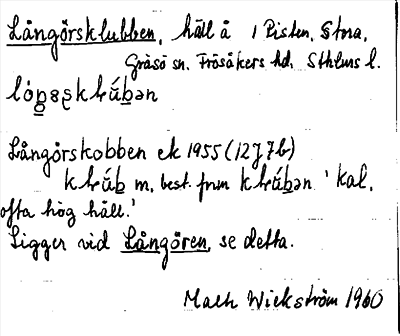 Långörsklubben, häll å 1 Pisten, Stora,
Gräsö sn. Frösåkers hd. Sthlms l.
Långörskobben ek 1955 (12J7b)
m, best. frmn ' kal,
ofta hög häll.'
Ligger vid Långören, se detta.
Math Wickström 1960